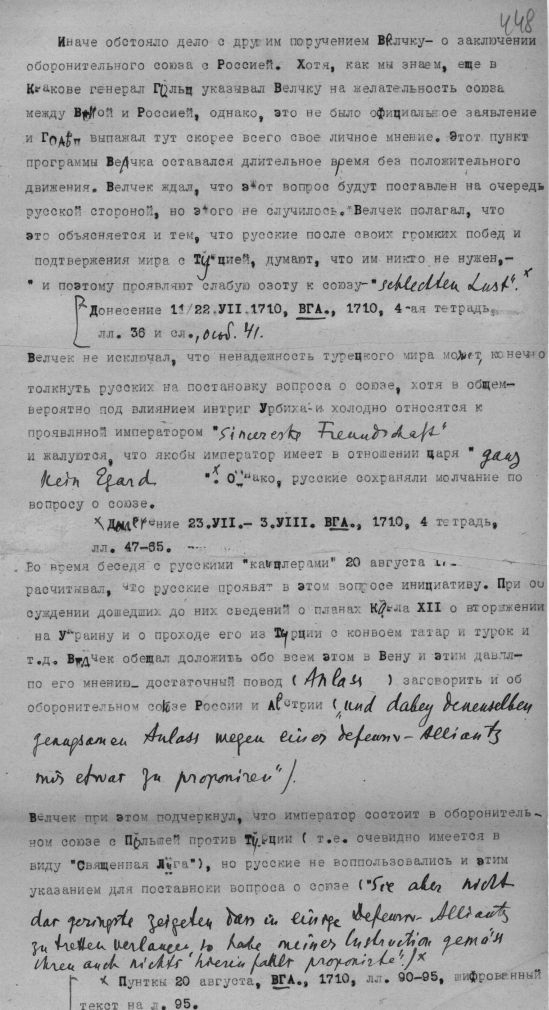 448
Иначе обстояло дело с другим поручением Велчку- о заключении
оборонительного союза с Россией. Хотя, как мы знаем, еще в
Кракове генерал Гольц указывал Велчку на желательность союза
между Веной и Россией, однако, это не было официальное заявление
и Гольц выпажал тут скорее всего свое личное мнение. Этот пункт
программы Велчка оставался длительное время без положительного
движения. Велчек ждал, что этот вопрос будут поставлен на очередь
русской стороной, но этого не случилось. Велчек полагал, что
это объясняется и тем, что русские после своих громких побед и
подтвержения мира с Турцией, думают, что им никто не нужен,-
" и поэтому проявляют слабую озоту к союзу-"schlechten Lust". x
Донесение 11/22.VII.1710, ВГА., 1710, 4-ая тетрадь,
лл. 36 и сл., особ. 41.
Велчек не исключал, что ненадежность турецкого мира может, конечно
толкнуть русских на постановку вопроса о союзе, хотя в общем-
вероятно под влиянием интриг Урбиха-и холодно относятся к
проявлнной императором "sincereste Freundschaft"
и жалуются, что якобы император имеет в отношении царя " ganz
kein Egard ". x Однако, русские сохраняли молчание по
вопросу о союзе.
x Донесение 23.VII.- 3.VIII. ВГА., 1710, 4 тетрадь,
лл. 47-65.
Во время беседя с русскими "канцлерами" 20 августа
расчитывал, что русские проявят в этом вопросе инициативу. При об
суждении дошедших до них сведений о планах Карла XII о вторжении
на Украину и о проходе его из Турции с конвоем татар и турок и
т.д. Велчек обещал доложить обо всем этом в Вену и этим давля-
по его мнению- достаточный повод ( Anlass ) заговорить и об
оборонительном союзе России и Австрии ( "und dabey denenselben
genugsamen Anlass wegen einer defensiv-Alliantz
mir etwas zu proponiren")/.
Велчек при этом подчеркнул, что император состоит в оборонитель-
ном союзе с Польшей против Турции ( т.е. очевидно имеется в
виду "Священная Лига"), но русские не воппользовались и этим
указанием для поставноки вопроса о союзе ("Sie aber nicht
das geringste zeigeten dass in einige Defensiv-Alliantz
zu tretten verlangen, so habe meiner Instruction gemäss
ihnen auch nichts hierinfahls proponirte".) x
x Пунткы 20 августа, ВГА., 1710, лл. 90-95, шифрованный
текст на л. 95.